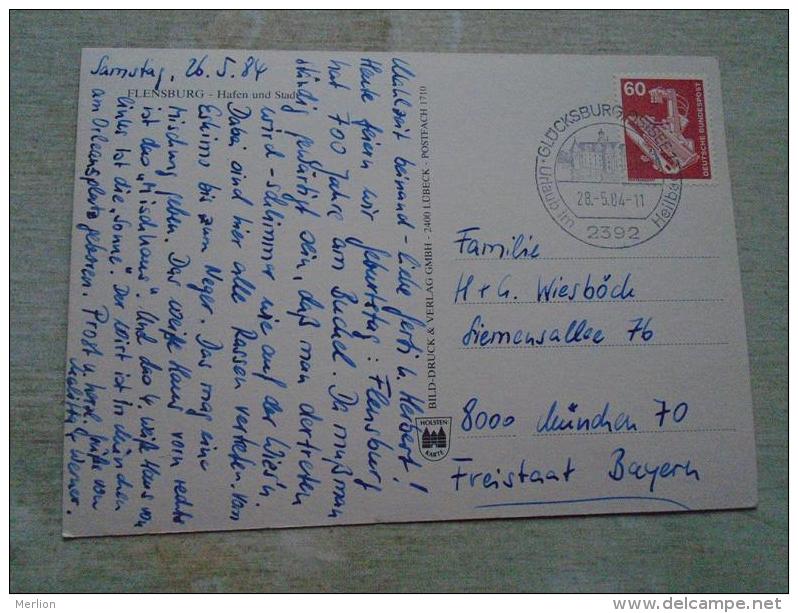 Samstag, 26.5.84
FLENSBURG - Hafen und Stadt
Mahlzeit beinand - liebe Gerti u. Herbert!
Heute feiern wir Geburtstag: Flensburg
hat 700 Jahre am Buckel. Da muß man
ständig gewärtigt sein, daß man dertreten
wird - schlimmer wie auf der Wies'n
Dabei sind hier alle Rassen vertreten. Vom
Eskimo bis zum Neger. Das mag eine
Mischung geben. Das weiße Haus vorn rechts
ist das "Mischhaus". Und das 4. weiße Haus von
links ist die "Sonne". Der Wirt ist in München
am Orleansplatz geboren. Prost u. herzl. Grüße von
& Werner.
BILD-DRUCK & VERLAG GMBH - 2400 LÜBECK - POSTFACH 1710
HOLSTEN
KARTE
60
DEUTSCHE BUNDESPOST
GLÜCKSBURG, OSTSEE
Urlaub im Heilbad
28.-5.84-11
2392
Familie
H + G. Wiesböck
Siemensallee 76
8000 München 70
Freistaat Bayern
Merlion
delcampe.net